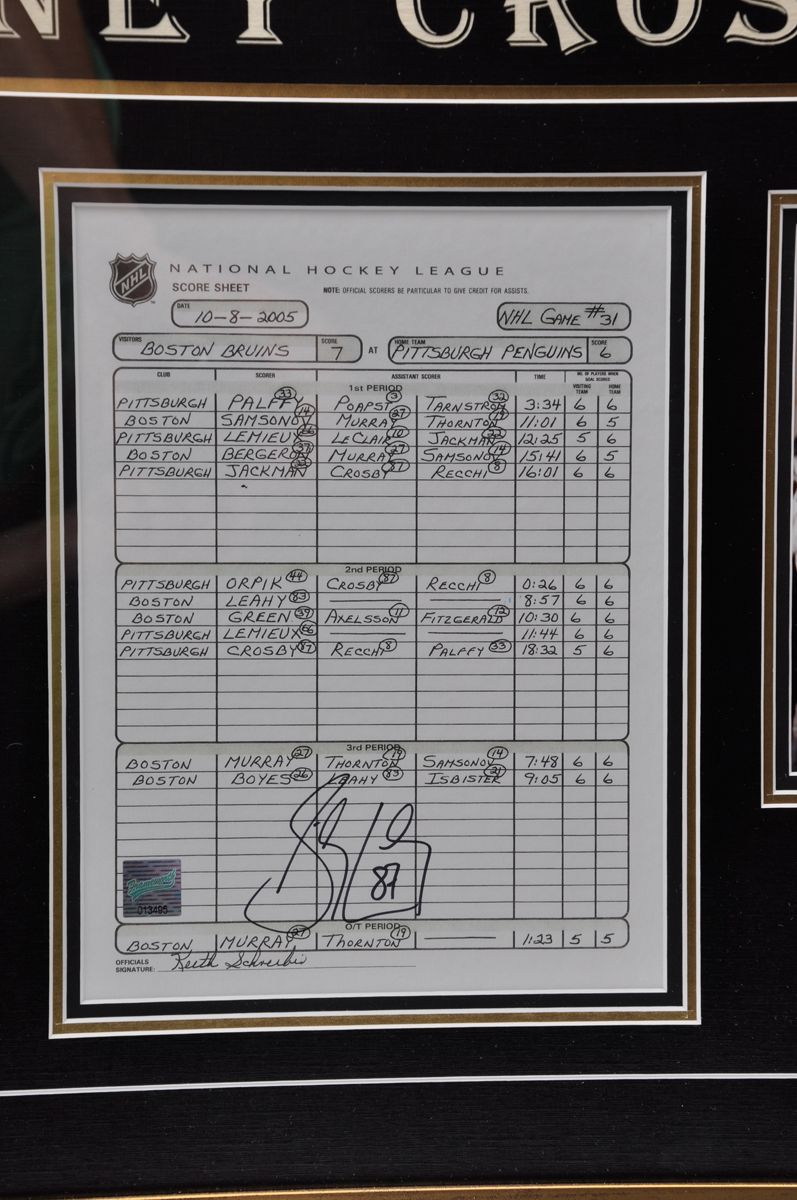 NEY CROS
NHL
NATIONAL HOCKEY LEAGUE
SCORE SHEET
NOTE: OFFICIAL SCORERS BE PARTICULAR TO GIVE CREDIT FOR ASSISTS.
DATE
10-8-2005
NHL GAME #31
VISITORS BOSTON BRUINS SCORE 7 AT HOME TEAM PITTSBURGH PENGUINS SCORE 6
CLUB SCORER ASSISTANT SCORER TIME NO. OF PLAYERS WHEN GOAL SCORED
VISITING TEAM HOME TEAM
1st PERIOD
PITTSBURGH PALFFY 33 POAPST 3 TARNSTROM 32 3:34 6 6
BOSTON SAMSONOV 14 MURRAY 27 THORNTON 19 11:01 6 5
PITTSBURGH LEMIEUX 66 LECLAIR 10 JACKMAN 22 12:25 5 6
BOSTON BERGERON 37 MURRAY 27 SAMSONOV 14 15:41 6 5
PITTSBURGH JACKMAN 22 CROSBY 87 RECCHI 8 16:01 6 6
2nd PERIOD
PITTSBURGH ORPIK 44 CROSBY 87 RECCHI 8 0:26 6 6
BOSTON LEAHY 83 8:57 6 6
BOSTON GREEN 39 AXELSSON 11 FITZGERALD 12 10:30 6 6
PITTSBURGH LEMIEUX 66 11:44 6 6
PITTSBURGH CROSBY 87 RECCHI 8 PALFFY 33 18:32 5 6
3rd PERIOD
BOSTON MURRAY 27 THORNTON 19 SAMSONOV 14 7:48 6 6
BOSTON BOYES 26 LEAHY 83 ISBISTER 21 9:05 6 6
87
Frameworth
013495
O/T PERIOD
BOSTON MURRAY 27 THORNTON 19 1:23 5 5
OFFICIALS
SIGNATURE: Keith Schreiber